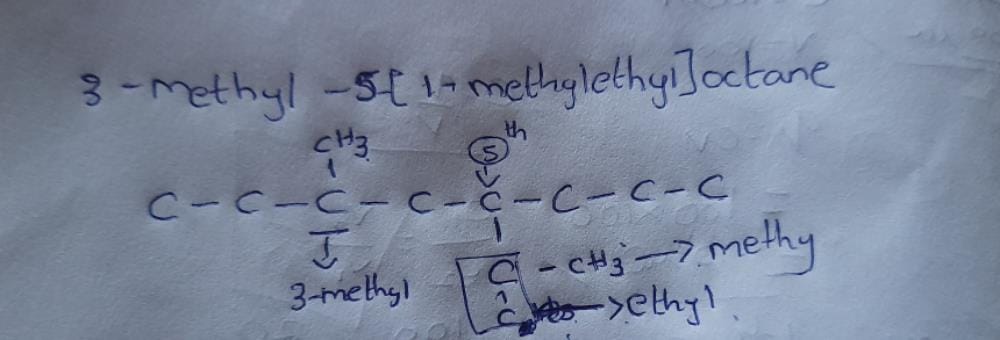 3-methyl-5-[1-methylethyl]octane
CH3 5th
C-C-C-C-C-C-C-C
3-methyl C-CH3 → methy
C → ethyl.